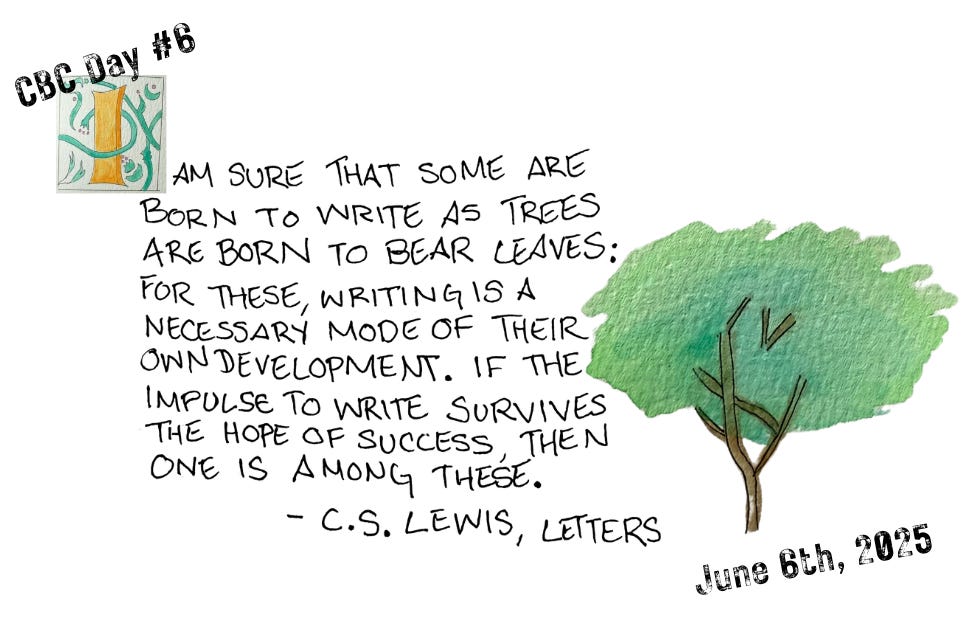 CBC Day #6
I AM SURE THAT SOME ARE
BORN TO WRITE AS TREES
ARE BORN TO BEAR LEAVES:
FOR THESE, WRITING IS A
NECESSARY MODE OF THEIR
OWN DEVELOPMENT. IF THE
IMPULSE TO WRITE SURVIVES
THE HOPE OF SUCCESS, THEN
ONE IS AMONG THESE.
- C.S. LEWIS, LETTERS
June 6th, 2025